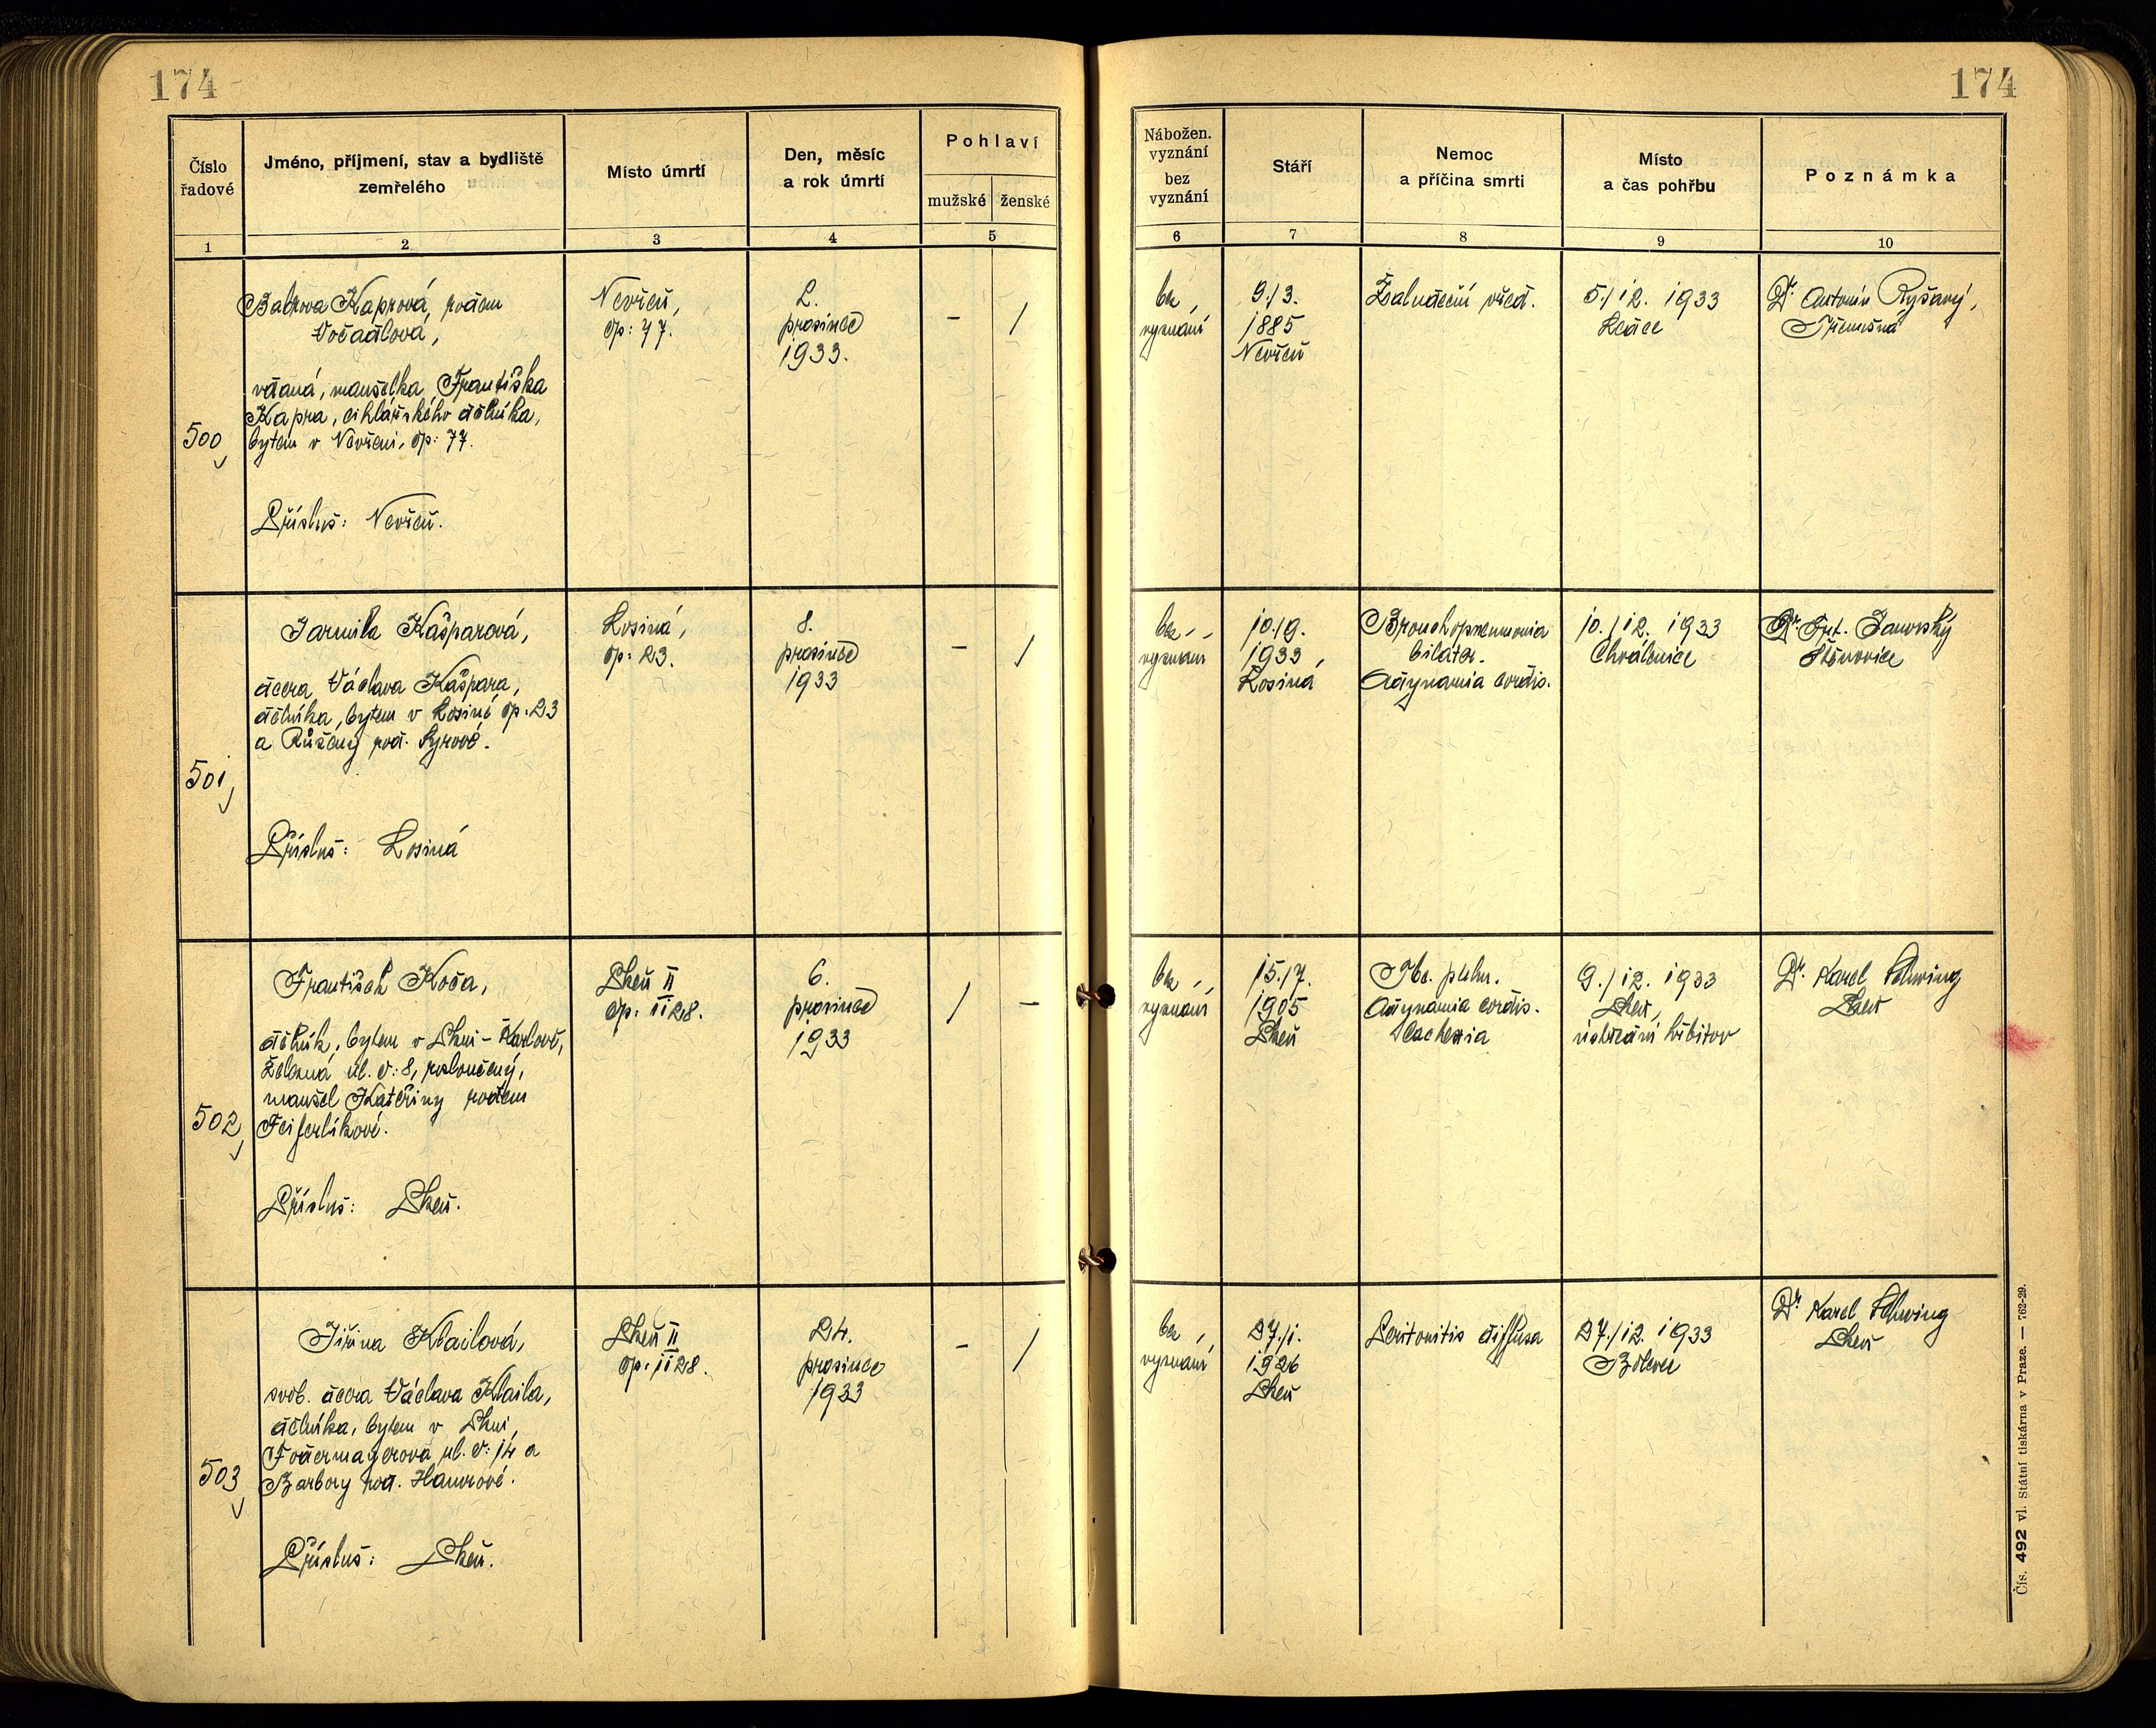 174
174
Číslo
řadové
Jméno, příjmení, stav a bydliště
zemřelého
Místo úmrtí
Den, měsíc
a rok úmrtí
Pohlaví
mužské
ženské
1
2
3
4
5
Nábožen.
vyznání
bez
vyznání
Stáří
Nemoc
a příčina smrti
Místo
a čas pohřbu
Poznámka
6
7
8
9
10
500
Kaprová, rodem
Vočadlová,
vdaná, manželka Františka
Kapra, cihlářského dělníka,
bytem v Nevřeni, čp: 77.
Přísluš: Nevřeň.
Nevřeň,
čp: 77.
2.
prosince
1933.
-
/
bez
vyznání
9./3.
1885
Nevřeň
Žaludeční vřed.
5./12. 1933
Ledce
Dr. Antonín Ryšavý,
Třemošná
501
Jarmila Kašparová,
dcera Václava Kašpara,
dělníka, bytem v Losiné čp. 23
a Růženy roz. Syrové.
Přísluš: Losiná
Losiná,
čp: 23.
8.
prosince
1933
-
/
bez
vyznání
10./9.
1933,
Losiná
Bronchopneumonia
bilater.
Adynamia cordis.
10./12. 1933
Chválenice
Dr. Frt. Janovský
Štěnovice
502
František Koča,
dělník, bytem v Plzni - Karlově,
Železná ul. č: 8, rozloučený,
manžel Kateřiny rodem
Feiferlíkové.
Přísluš: Plzeň.
Plzeň II
čp. II 28.
6.
prosince
1933
/
-
bez
vyznání
15./7.
1905
Plzeň
Tbc. pulm.
Adynamia cordis.
Cachexia
9./12. 1933
Plzeň,
ústřední hřbitov
Dr. Karel Schwing
Plzeň
503
Jiřina Klailová,
svob. dcera Václava Klaila,
dělníka, bytem v Plzni,
Fodermayerova ul. č: 14 a
Barbory roz. Hanrové.
Přísluš: Plzeň.
Plzeň II
čp. II 28.
24.
prosince
1933
-
/
bez
vyznání
27./1.
1926
Plzeň
Peritonitis diffusa
27./12. 1933
Bolevec
Dr. Karel Schwing
Plzeň
Čís. 492 vl. Státní tiskárna v Praze. — 762-29.